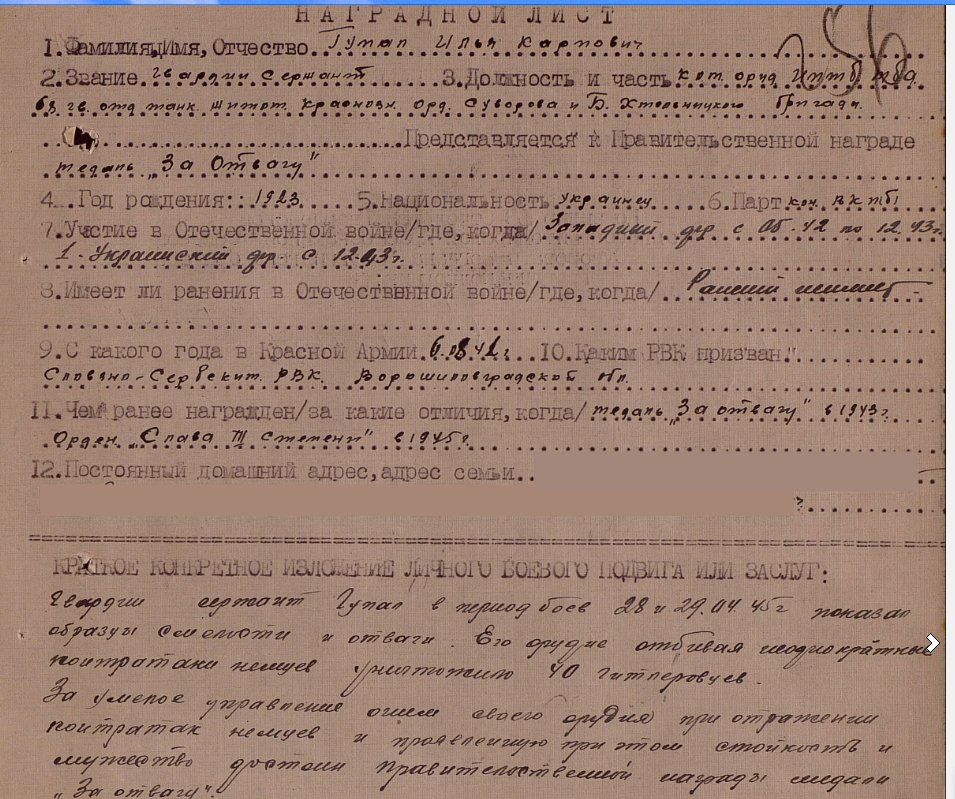 НАГРАДНОЙ ЛИСТ
1. Фамилия, Имя, Отчество Гупал Илья Карпович
2. Звание гвардии сержант 3. Должность и часть ком. оруд.
68 гв. отд. танк. Житом. Краснозн. Орд. Суворова и Б. Хмельницкого бригады
Представляется к Правительственной награде
медаль „За Отвагу"
4. Год рождения: 1923 5. Национальность украинец 6. Парт кан. ВКПб
7. Участие в Отечественной войне/где, когда/ Западный фр с 08.42 по 12.43г.
1-Украинский фр. с 12.43г.
8. Имеет ли ранения в Отечественной войне/где, когда/
9. С какого года в Красной Армии 10. Каким РВК призван
Славяно-Сербским РВК. Ворошиловградской обл.
11. Чем ранее награжден/за какие отличия, когда/ медаль „За отвагу" в 1943г
Орден „Слава III степени" в 1945г.
12. Постоянный домашний адрес, адрес семьи..
КРАТКОЕ КОНКРЕТНОЕ ИЗЛОЖЕНИЕ ЛИЧНОГО БОЕВОГО ПОДВИГА ИЛИ ЗАСЛУГ:
Гвардии сержант Гупал в период боев 28 и 29.04.45г показал
образцы смелости и отваги. Его орудие отбивая неоднократные
контратаки немцев уничтожило 40 гитлеровцев.
За умелое управление огнем своего орудия при отражении
контратак немцев и проявленную при этом стойкость и
мужество достоин правительственной награды медали
„За отвагу".